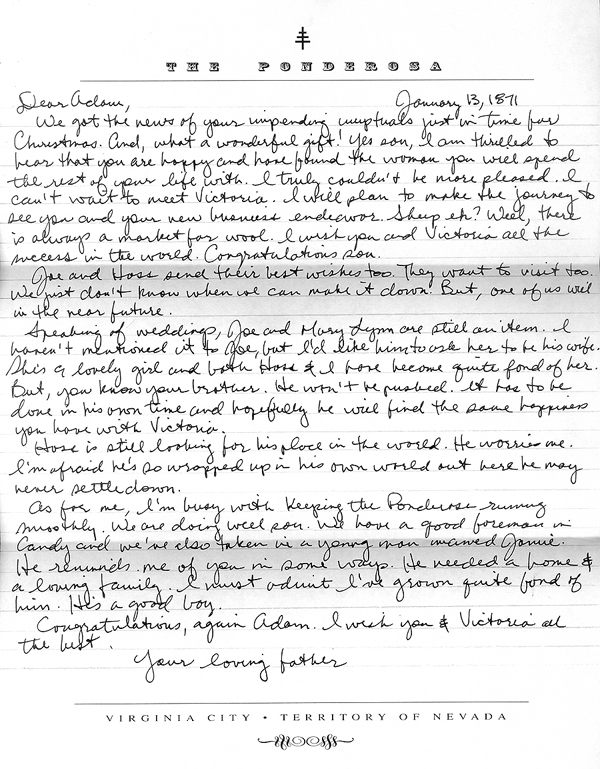 THE PONDEROSA
January 13, 1871
Dear Adam,
We got the news of your impending nuptuals just in time for
Christmas. And, what a wonderful gift! Yes son, I am thrilled to
hear that you are happy and have found the woman you will spend
the rest of your life with. I truly couldn't be more pleased. I
can't wait to meet Victoria. I will plan to make the journey to
see you and your new business endeavor. Sheep eh? Well, there
is always a market for wool. I wish you and Victoria all the
success in the world. Congratulations son.
Joe and Hoss send their best wishes too. They want to visit too.
We just don't know when we can make it down. But, one of us will
in the near future.
Speaking of weddings, Joe and Mary Lynn are still an item. I
haven't mentioned it to Joe, but I'd like him to ask her to be his wife.
She's a lovely girl and both Hoss & I have become quite fond of her.
But, you know your brother. He won't be pushed. It has to be
done in his own time and hopefully he will find the same happiness
you have with Victoria.
Hoss is still looking for his place in the world. He worries me.
I'm afraid he's so wrapped up in his own world out here he may
never settle down.
As for me, I'm busy with keeping the Ponderosa running
smoothly. We are doing well son. We have a good foreman in
Candy and we've also taken in a young man named Jamie.
He reminds me of you in some ways. He needed a home &
a loving family. I must admit I've grown quite fond of
him. He's a good boy.
Congratulations, again Adam. I wish you & Victoria all
the best.
Your loving father
VIRGINIA CITY • TERRITORY OF NEVADA